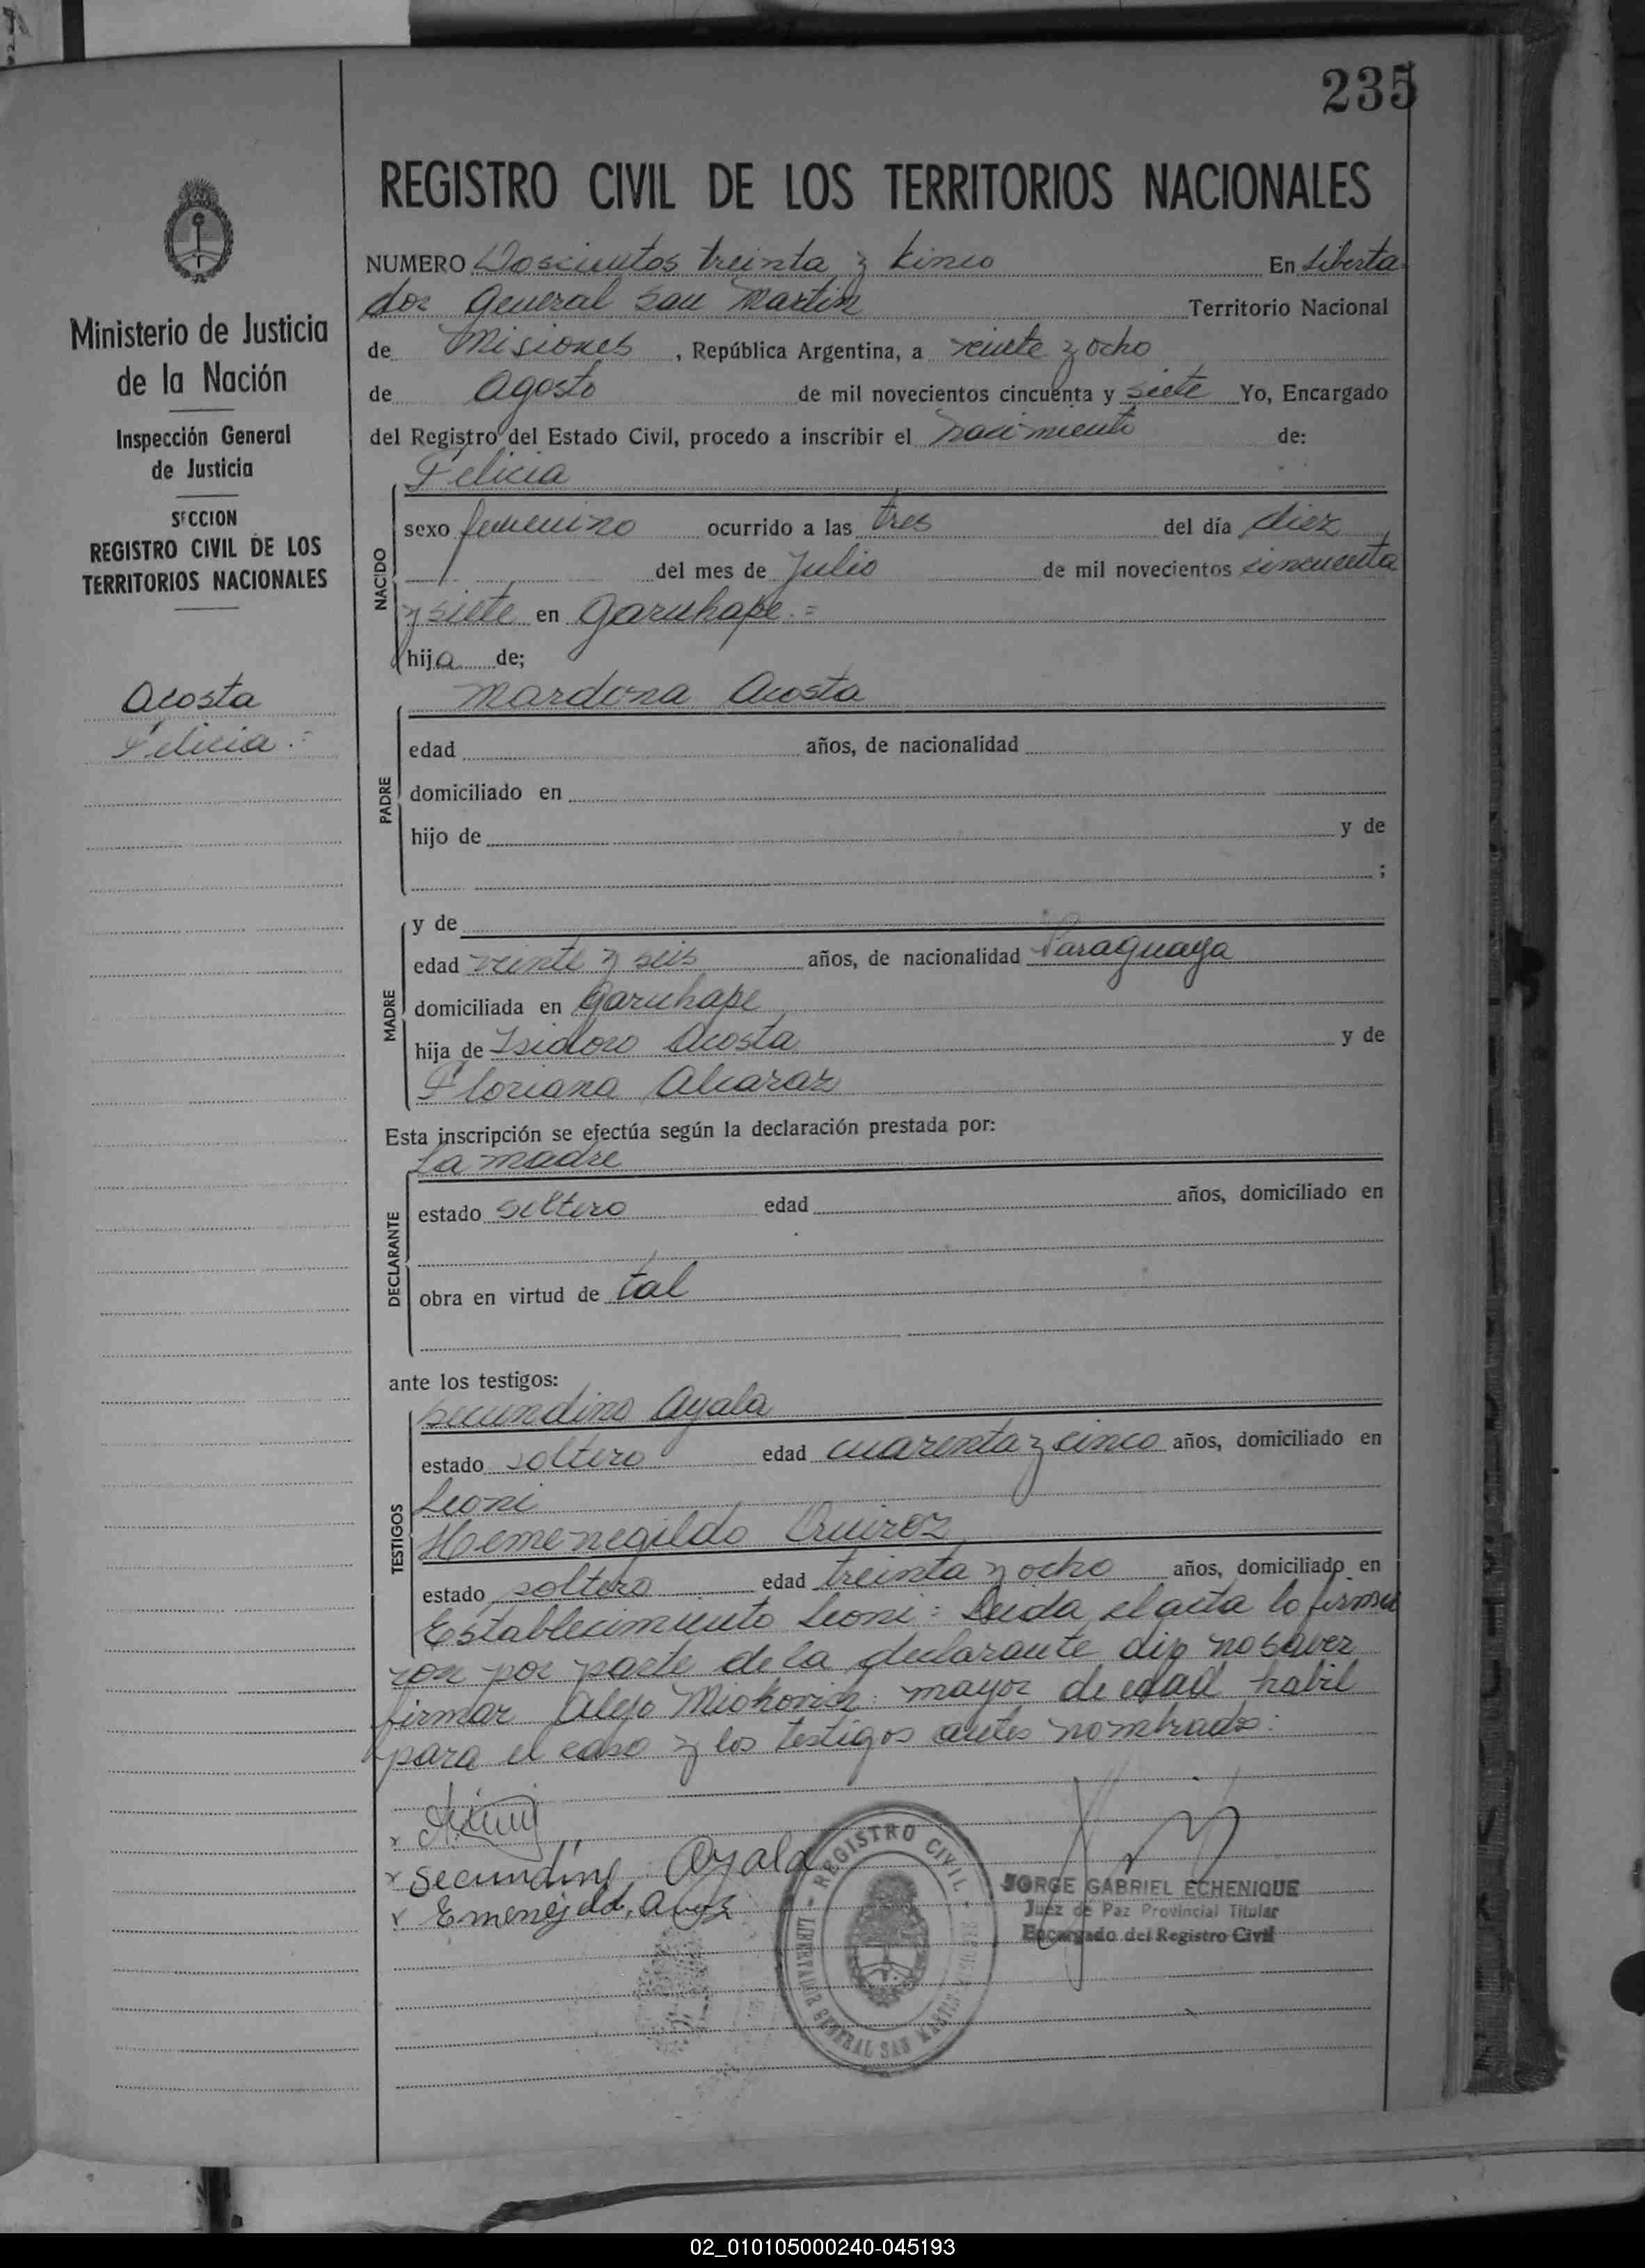 235
REGISTRO CIVIL DE LOS TERRITORIOS NACIONALES
Ministerio de Justicia
de la Nación
Inspección General
de Justicia
SECCION
REGISTRO CIVIL DE LOS
TERRITORIOS NACIONALES
Acosta
Felicia.=
NUMERO Doscientos treinta y kinco En Liberta
dor General San Martin Territorio Nacional
de Misiones, República Argentina, a veinte y ocho
de Agosto de mil novecientos cincuenta y siete Yo, Encargado
del Registro del Estado Civil, procedo a inscribir el nacimiento de:
Felicia
NACIDO
sexo femenino ocurrido a las tres del día diez
del mes de Julio de mil novecientos cincuenta
y siete en Garuhape.=
hija de;
Mardona Acosta
PADRE
edad años, de nacionalidad
domiciliado en
hijo de y de
;
y de
MADRE
edad veinte y seis años, de nacionalidad Paraguaya
domiciliada en Garuhape
hija de Isidoro Acosta y de
Floriana Alcaraz
Esta inscripción se efectúa según la declaración prestada por:
La madre
DECLARANTE
estado soltero edad años, domiciliado en
obra en virtud de tal
ante los testigos:
Secundino Ayala
TESTIGOS
estado soltero edad cuarenta y cinco años, domiciliado en
Leoni
Hemenegildo Quiroz
estado soltero edad treinta y ocho años, domiciliado en
Establecimiento Leoni = Leida el acta lo firma
ron por parte de la declarante dijo no saver
firmar Alejo Miokovich: mayor de edad habil
para el caso y los testigos antes nombrados:
x
x Secundino Ayala
x Emenejildo
REGISTRO CIVIL
LIBERTADOR GENERAL SAN MARTIN
JORGE GABRIEL ECHENIQUE
Juez de Paz Provincial Titular
Encargado del Registro Civil
02_010105000240-045193